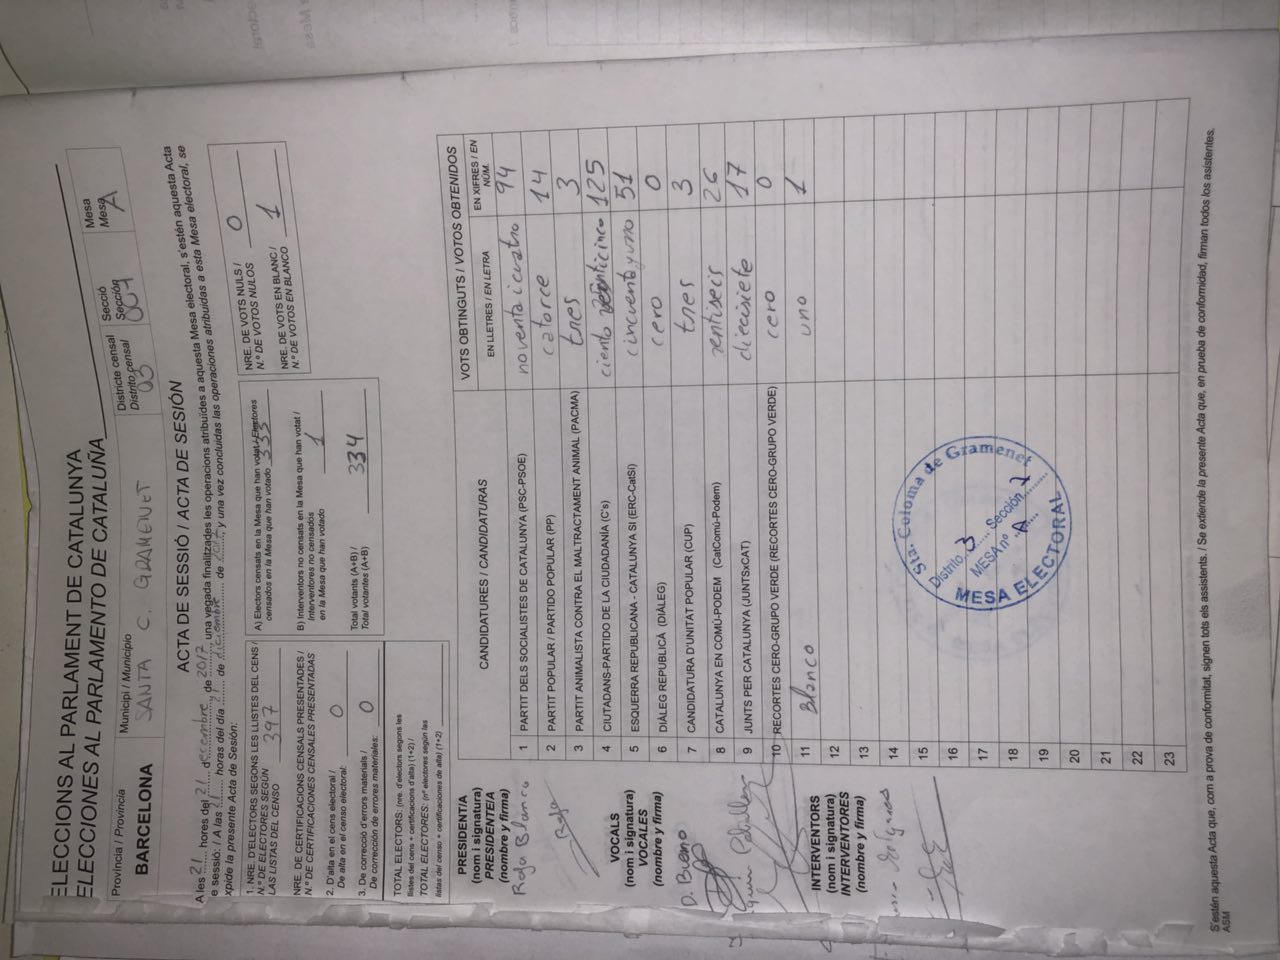 ELECCIONS AL PARLAMENT DE CATALUNYA
ELECCIONES AL PARLAMENTO DE CATALUÑA
Província / Provincia
BARCELONA
Municipi / Municipio
SANTA C. GRAMENET
Districte censal
Distrito censal
03
Secció
Sección
007
Mesa
Mesa
A
ACTA DE SESSIÓ / ACTA DE SESIÓN
A les 21 hores del 21 d diciembre de 2017, una vegada finalitzades les operacions atribuïdes a aquesta Mesa electoral, s'estén aquesta Acta
e sessió: / A las 21 horas del día 21 de diciembre de 2017, y una vez concluidas las operaciones atribuidas a esta Mesa electoral, se
xpide la presente Acta de Sesión:
1. NRE. D'ELECTORS SEGONS LES LLISTES DEL CENS /
N.º DE ELECTORES SEGÚN
LAS LISTAS DEL CENSO 397
NRE. DE CERTIFICACIONS CENSALS PRESENTADES /
N.º DE CERTIFICACIONES CENSALES PRESENTADAS
2. D'alta en el cens electoral /
De alta en el censo electoral: 0
3. De correcció d'errors materials /
De corrección de errores materiales: 0
TOTAL ELECTORS: (nre. d'electors segons les
llistes del cens + certificacions d'alta) (1+2) /
TOTAL ELECTORES: (nº electores según las
listas del censo + certificaciones de alta) (1+2)
A) Electors censats en la Mesa que han votat / Electores
censados en la Mesa que han votado 333
B) Interventors no censats en la Mesa que han votat /
Interventores no censados
en la Mesa que han votado 1
Total votants (A+B) /
Total votantes (A+B) 334
NRE. DE VOTS NULS /
N.º DE VOTOS NULOS 0
NRE. DE VOTS EN BLANC /
N.º DE VOTOS EN BLANCO 1
CANDIDATURES / CANDIDATURAS
VOTS OBTINGUTS / VOTOS OBTENIDOS
EN LLETRES / EN LETRA
EN XIFRES / EN NÚM.
1 PARTIT DELS SOCIALISTES DE CATALUNYA (PSC-PSOE) noventa i cuatro 94
2 PARTIT POPULAR / PARTIDO POPULAR (PP) catorce 14
3 PARTIT ANIMALISTA CONTRA EL MALTRACTAMENT ANIMAL (PACMA) tres 3
4 CIUTADANS-PARTIDO DE LA CIUDADANÍA (C's) ciento veinticinco 125
5 ESQUERRA REPUBLICANA - CATALUNYA SI (ERC-CatSí) cincuenta y uno 51
6 DIÀLEG REPUBLICÀ (DIÀLEG) cero 0
7 CANDIDATURA D'UNITAT POPULAR (CUP) tres 3
8 CATALUNYA EN COMÚ-PODEM (CatComú-Podem) ventiseis 26
9 JUNTS PER CATALUNYA (JUNTSxCAT) diecisiete 17
10 RECORTES CERO-GRUPO VERDE (RECORTES CERO-GRUPO VERDE) cero 0
11 Blanco uno 1
12
13
14
15
16
17
18
19
20
21
22
23
PRESIDENTIA
(nom i signatura)
PRESIDENTEIA
(nombre y firma)
Rafa Blanco
Rafa
VOCALS
(nom i signatura)
VOCALES
(nombre y firma)
D. Bueno
INTERVENTORS
(nom i signatura)
INTERVENTORES
(nombre y firma)
Sta. Coloma de Gramenet
Distrito 3 Sección 7
MESA nº A
MESA ELECTORAL
S'estén aquesta Acta que, com a prova de conformitat, signen tots els assistents. / Se extiende la presente Acta que, en prueba de conformidad, firman todos los asistentes.
ASM